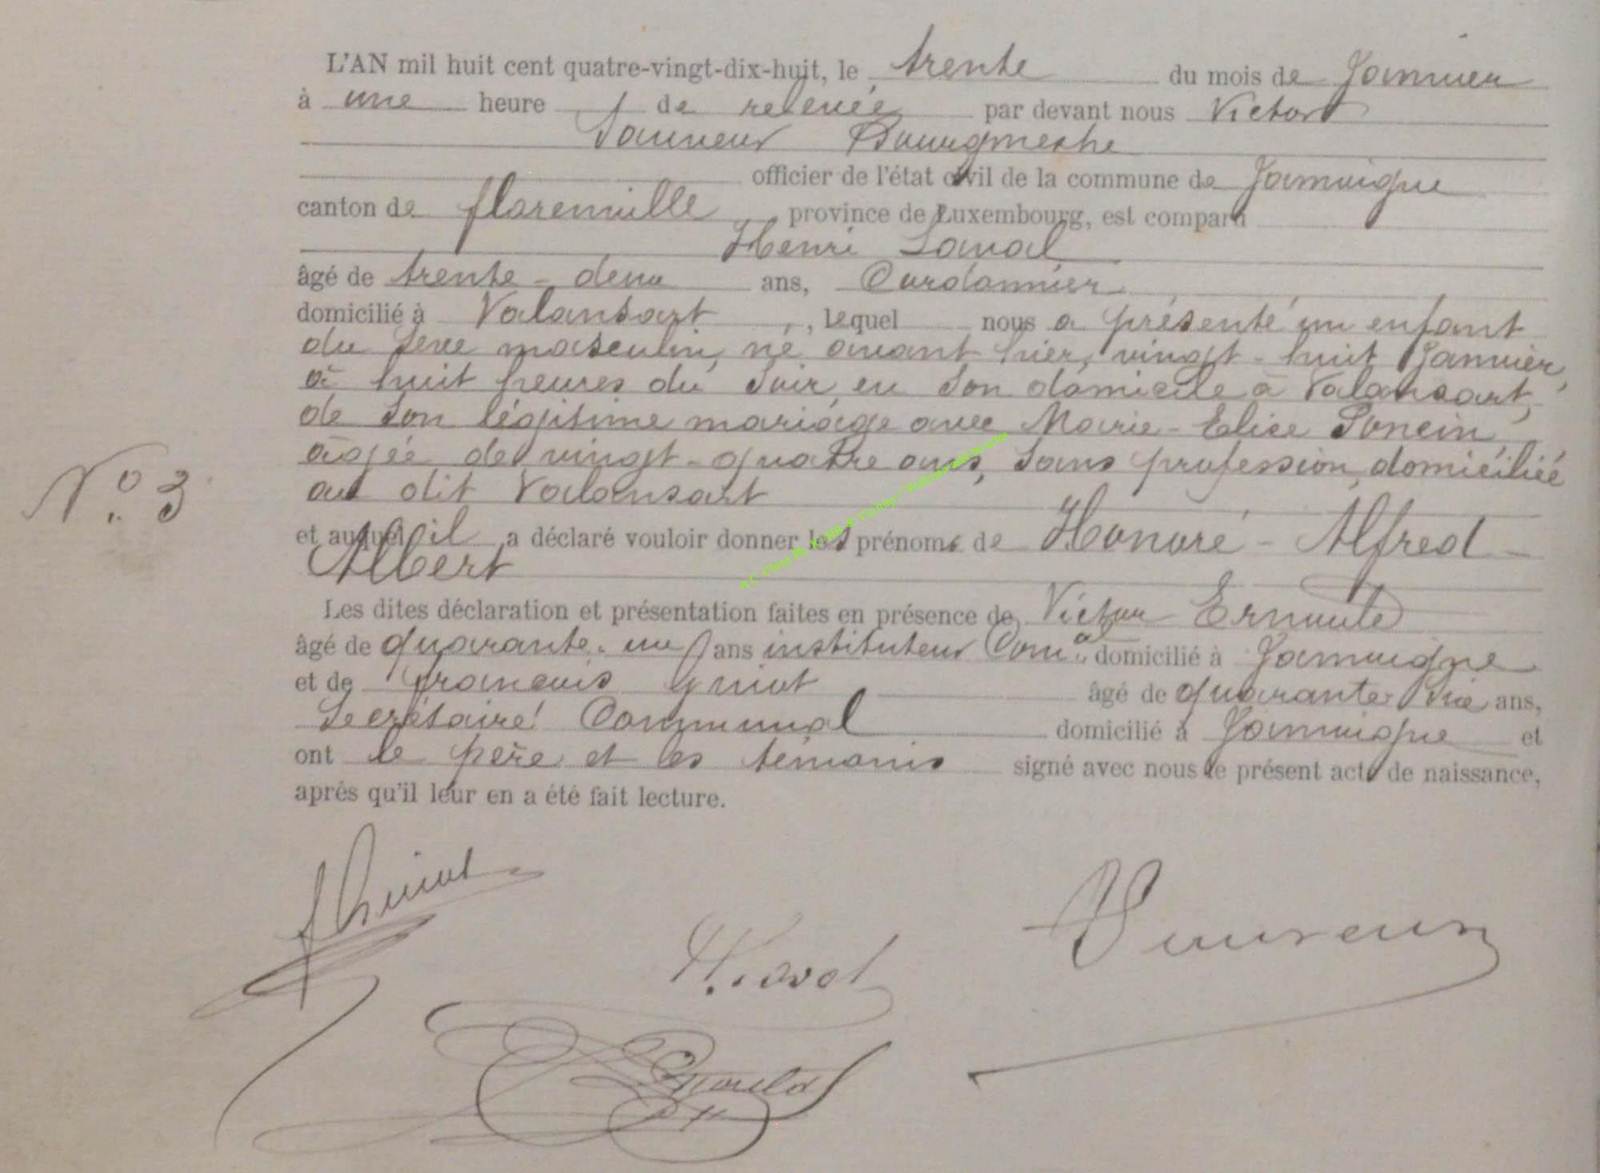 L'AN mil huit cent quatre-vingt-dix-huit, le trente du mois de Janvier
à une heure de relevée par devant nous Victor
Sauveur Bourgmestre
officier de l'état civil de la commune de Jamoigne
canton de florenville, province de Luxembourg, est comparu
Henri Laval
âgé de trente-deux ans, Cordonnier
domicilié à Valansart, lequel nous a présenté un enfant
du sexe masculin, né avant hier, vingt-huit Janvier,
à huit heures du soir, en son domicile à Valansart,
de son légitime mariage avec Marie-Elise Poncin
âgée de vingt-quatre ans, sans profession, domiciliée
au dit Valansart
N° 3
et auquel il a déclaré vouloir donner les prénoms de Honoré-Alfred-
Albert
Les dites déclaration et présentation faites en présence de Victor
âgé de quarante-un ans instituteur Com.al domicilié à Jamoigne
et de françois âgé de quarante six ans,
Secrétaire Communal domicilié à Jamoigne et
ont le père et les témoins signé avec nous le présent acte de naissance,
après qu'il leur en a été fait lecture.
H. Laval
V Sauveur